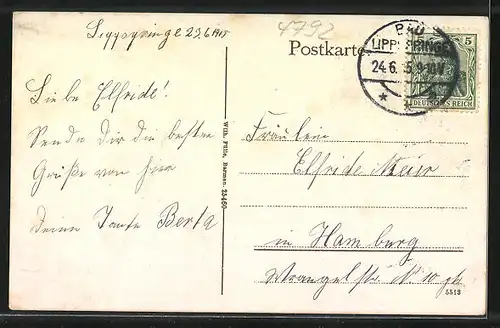 Lippspringe 23.6.1915
4792
Postkarte
BAD
LIPPSPRINGE
24.6.15.9-10V
5
DEUTSCHES REICH
Liebe Elfride!
Sende Dir die besten
Grüße von hier
Deine Tante Berta
Wilh. Fülle, Barmen. 24460
Fräulein
Elfride Meier
in Hamburg
Wrangelstr. N. 10
5513